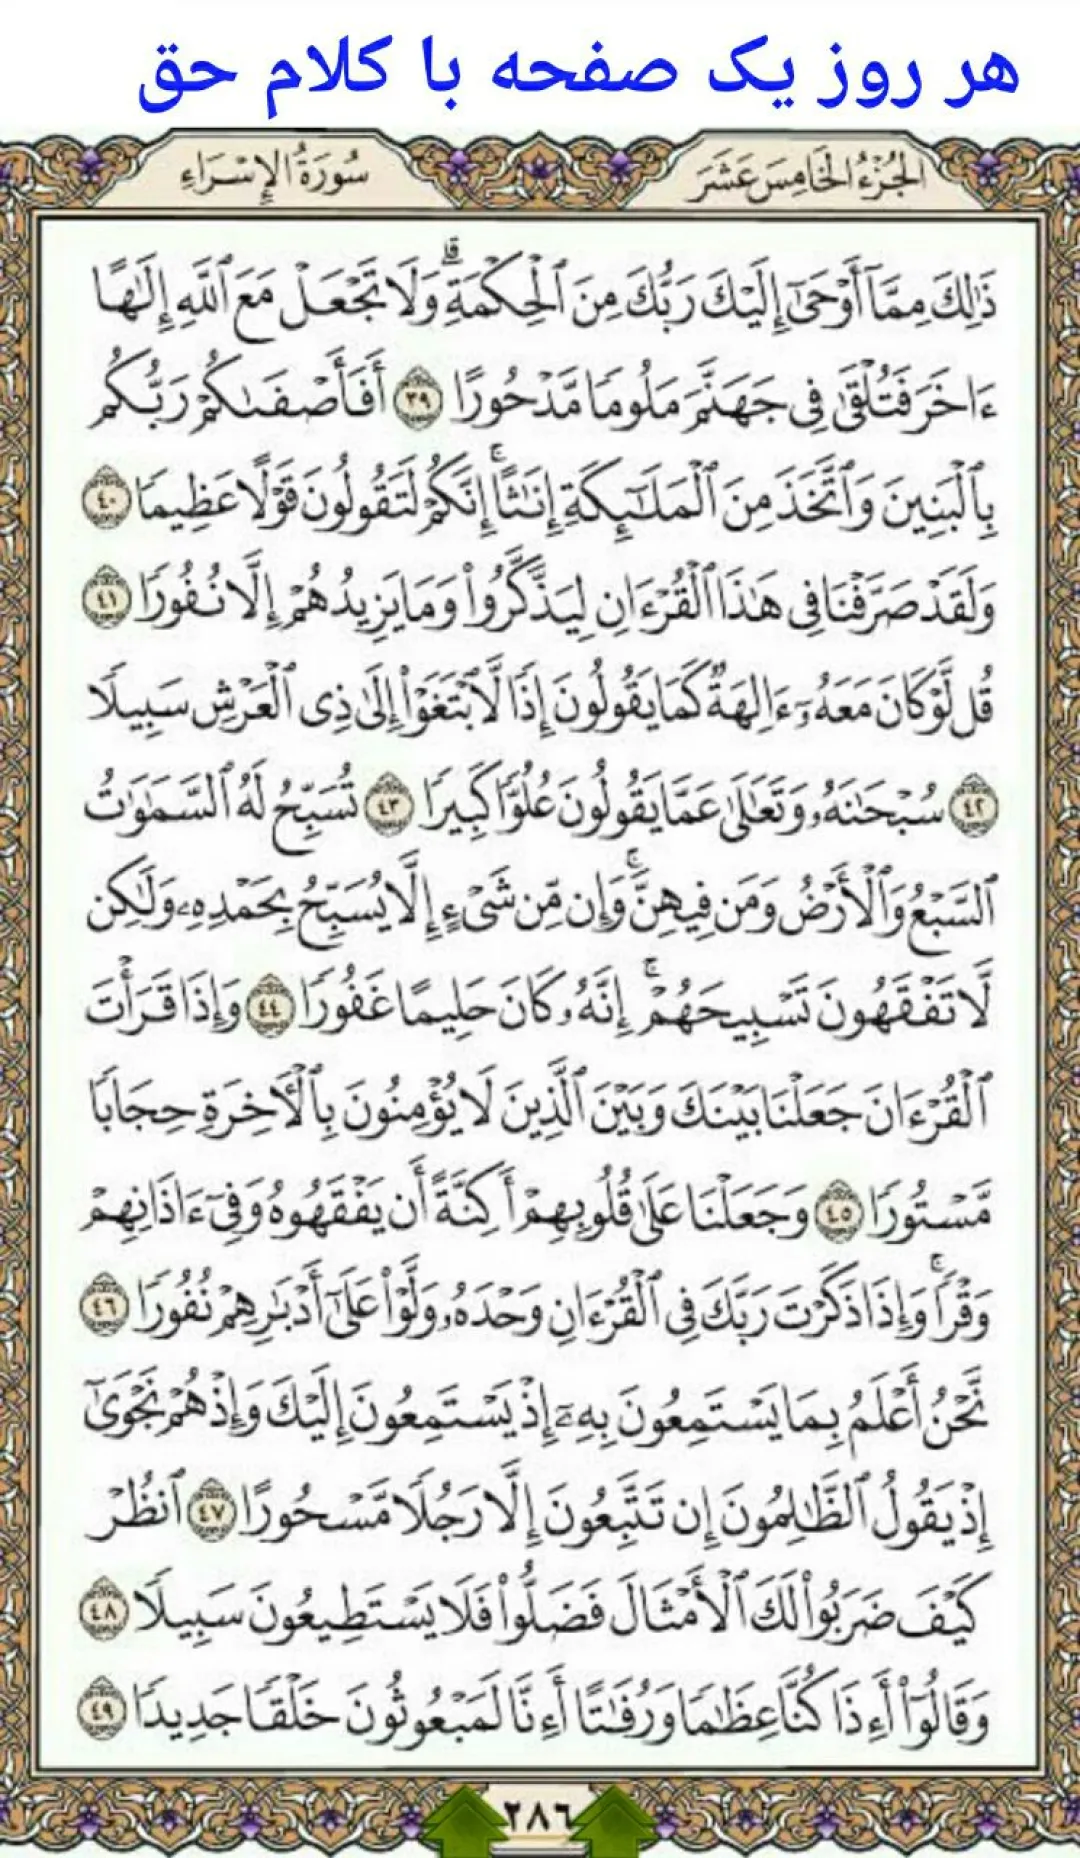 هر روز یک صفحه با کلام حق
الجُزْءُ الخَامِسَ عَشَرَ
سُورَةُ الإِسْرَاءِ
ذَٰلِكَ مِمَّآ أَوْحَىٰٓ إِلَيْكَ رَبُّكَ مِنَ ٱلْحِكْمَةِۗ وَلَا تَجْعَلْ مَعَ ٱللَّهِ إِلَٰهًا
ءَاخَرَ فَتُلْقَىٰ فِى جَهَنَّمَ مَلُومًا مَّدْحُورًا ٣٩ أَفَأَصْفَىٰكُمْ رَبُّكُم
بِٱلْبَنِينَ وَٱتَّخَذَ مِنَ ٱلْمَلَٰٓئِكَةِ إِنَٰثًاۚ إِنَّكُمْ لَتَقُولُونَ قَوْلًا عَظِيمًا ٤٠
وَلَقَدْ صَرَّفْنَا فِى هَٰذَا ٱلْقُرْءَانِ لِيَذَّكَّرُوا۟ وَمَا يَزِيدُهُمْ إِلَّا نُفُورًا ٤١
قُل لَّوْ كَانَ مَعَهُۥٓ ءَالِهَةٌ كَمَا يَقُولُونَ إِذًا لَّٱبْتَغَوْا۟ إِلَىٰ ذِى ٱلْعَرْشِ سَبِيلًا
٤٢ سُبْحَٰنَهُۥ وَتَعَٰلَىٰ عَمَّا يَقُولُونَ عُلُوًّا كَبِيرًا ٤٣ تُسَبِّحُ لَهُ ٱلسَّمَٰوَٰتُ
ٱلسَّبْعُ وَٱلْأَرْضُ وَمَن فِيهِنَّۚ وَإِن مِّن شَىْءٍ إِلَّا يُسَبِّحُ بِحَمْدِهِۦ وَلَٰكِن
لَّا تَفْقَهُونَ تَسْبِيحَهُمْۗ إِنَّهُۥ كَانَ حَلِيمًا غَفُورًا ٤٤ وَإِذَا قَرَأْتَ
ٱلْقُرْءَانَ جَعَلْنَا بَيْنَكَ وَبَيْنَ ٱلَّذِينَ لَا يُؤْمِنُونَ بِٱلْأَخِرَةِ حِجَابًا
مَّسْتُورًا ٤٥ وَجَعَلْنَا عَلَىٰ قُلُوبِهِمْ أَكِنَّةً أَن يَفْقَهُوهُ وَفِىٓ ءَاذَانِهِمْ
وَقْرًاۚ وَإِذَا ذَكَرْتَ رَبَّكَ فِى ٱلْقُرْءَانِ وَحْدَهُۥ وَلَّوْا۟ عَلَىٰٓ أَدْبَٰرِهِمْ نُفُورًا ٤٦
نَّحْنُ أَعْلَمُ بِمَا يَسْتَمِعُونَ بِهِۦٓ إِذْ يَسْتَمِعُونَ إِلَيْكَ وَإِذْ هُمْ نَجْوَىٰٓ
إِذْ يَقُولُ ٱلظَّٰلِمُونَ إِن تَتَّبِعُونَ إِلَّا رَجُلًا مَّسْحُورًا ٤٧ ٱنظُرْ
كَيْفَ ضَرَبُوا۟ لَكَ ٱلْأَمْثَالَ فَضَلُّوا۟ فَلَا يَسْتَطِيعُونَ سَبِيلًا ٤٨
وَقَالُوٓا۟ أَءِذَا كُنَّا عِظَٰمًا وَرُفَٰتًا أَءِنَّا لَمَبْعُوثُونَ خَلْقًا جَدِيدًا ٤٩
٢٨٦